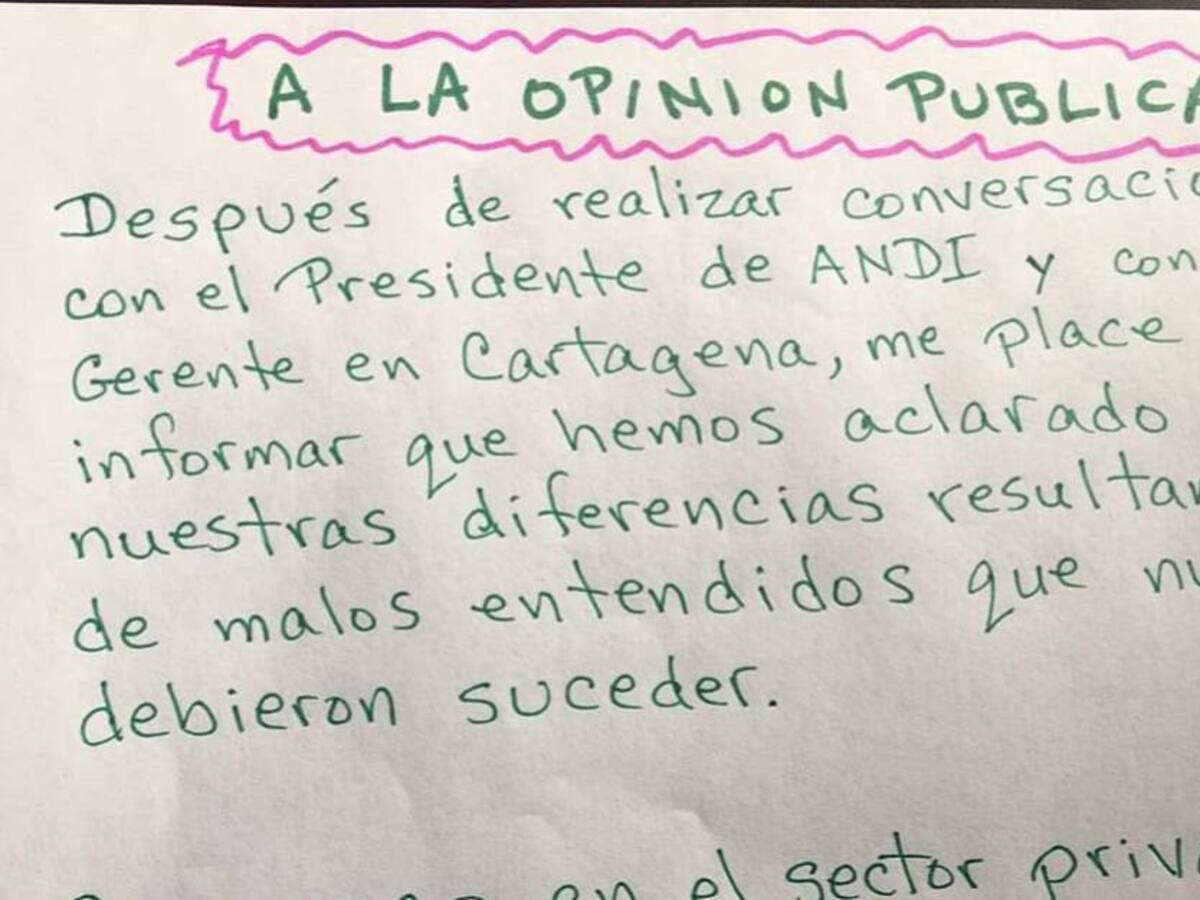 A LA OPINION PUBLICA
Después de realizar conversacio
con el Presidente de ANDI y con
Gerente en Cartagena, me place
informar que hemos aclarado
nuestras diferencias resultan
de malos entendidos que nu
debieron suceder.
en el sector priva